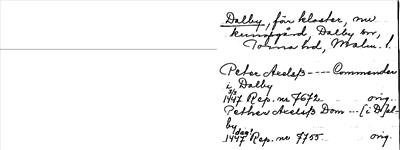 Dalby, förr kloster, nu
kungsgård, Dalby sn,
Torna hd, Malm. l.
Peter Axelss ---- Commender
i Dalby
1447 3/3 Rep. nr 7672 orig.
Pether Axelss Dom --- [i D]al-
by
1447 Rep. nr 7755 orig.